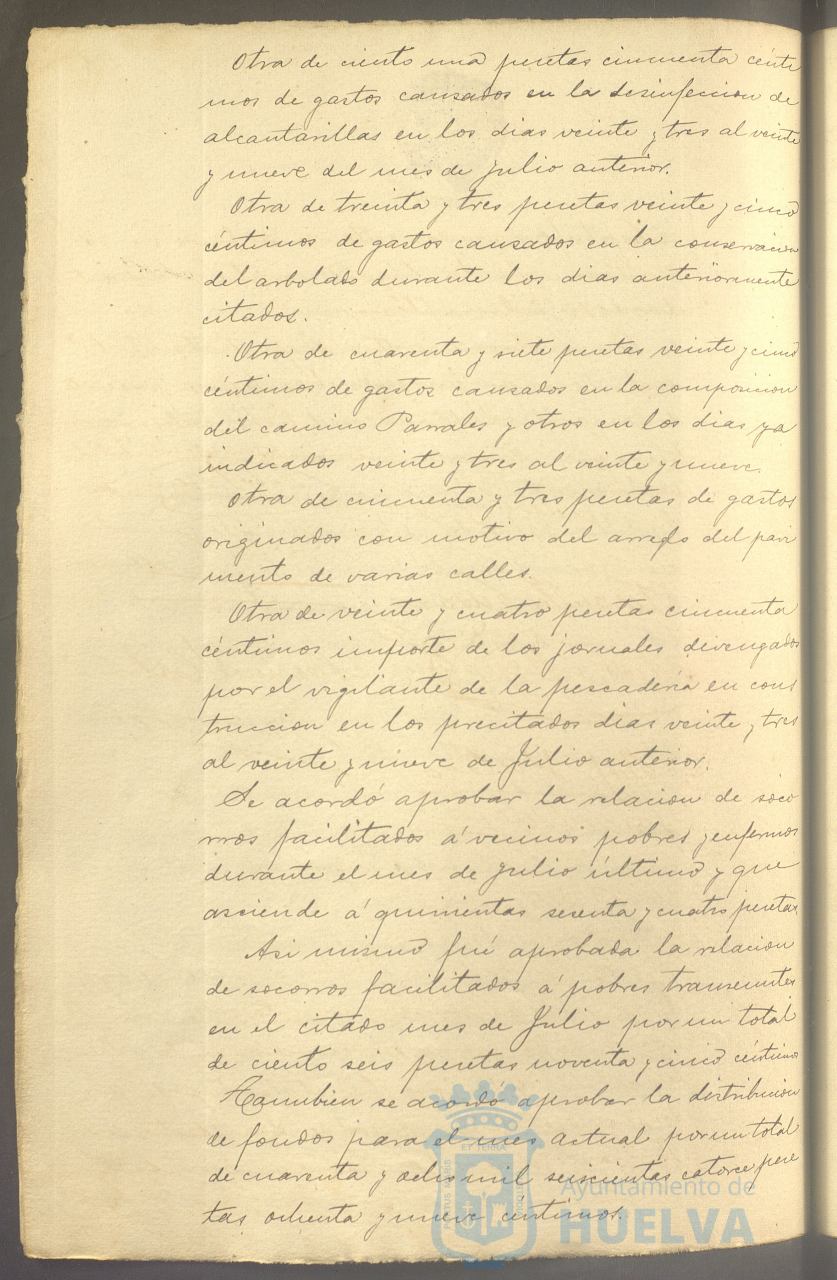 Otra de ciento una pesetas cincuenta cénti
mos de gastos causados en la desinfeccion de
alcantarillas en los dias veinte y tres al veinte
y nueve del mes de Julio anterior.
Otra de treinta y tres pesetas veinte y cinco
céntimos de gastos causados en la conservacion
del arbolado durante los dias anteriormente
citados.
Otra de cuarenta y siete pesetas veinte y cinco
céntimos de gastos causados en la composicion
del camino Parrales y otros en los dias ya
indicados veinte y tres al veinte y nueve.
Otra de cincuenta y tres pesetas de gastos
originados con motivo del arreglo del pavi
mento de varias calles.
Otra de veinte y cuatro pesetas cincuenta
céntimos importe de los jornales devengados
por el vigilante de la pescadería en cons
truccion en los precitados dias veinte y tres
al veinte y nueve de Julio anterior.
Se acordó aprobar la relacion de soco
rros facilitados á vecinos pobres y enfermos
durante el mes de Julio último y que
asciende á quinientas sesenta y cuatro pesetas
Asi mismo fué aprobada la relacion
de socorros facilitados á pobres transeuntes
en el citado mes de Julio por un total
de ciento seis pesetas noventa y cinco céntimos
Tambien se acordó aprobar la distribucion
de fondos para el mes actual por un total
de cuarenta y ocho mil seiscientas catorce pese
tas ochenta y nueve centimos.
ET TERRÆ
Ayuntamiento de
HUELVA